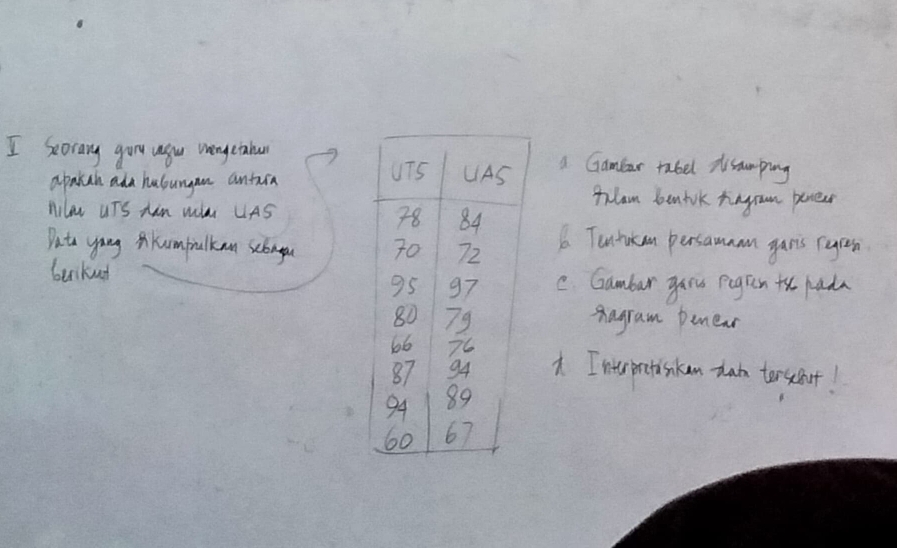 I Seorang guru ingin mengetahui
apakah ada hubungan antara
nilai UTS dan nilai UAS
Data yang dikumpulkan sebagai
berikut
UTS UAS
78 84
70 72
95 97
80 79
66 76
87 94
94 89
60 67
a Gambar tabel disamping
dalam bentuk diagram pencar
b. Tentukan persamaan garis regresi
c. Gambar garis regresi tsb pada
diagram pencar
d Interpretasikan data tersebut!